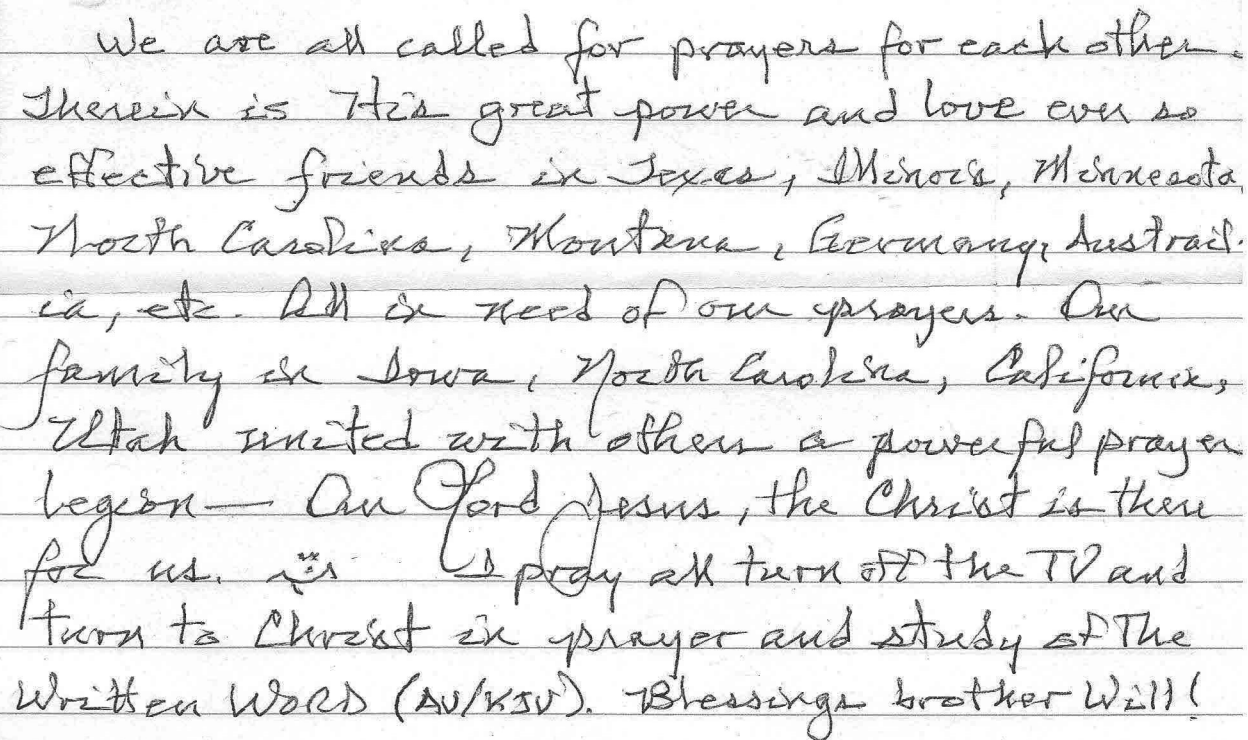 We are all called for prayers for each other.
Therein is His great power and love ever so
effective friends in Texas, Illinois, Minnesota,
North Carolina, Montana, Germany, Austrail-
ia, etc. All in need of our prayers. Our
family in Iowa, North Carolina, California,
Utah united with others a powerful prayer
legion — Our Lord Jesus, the Christ is there
for us. I pray all turn off the TV and
turn to Christ in prayer and study of The
Written WORD (AV/KJV). Blessings brother Will!